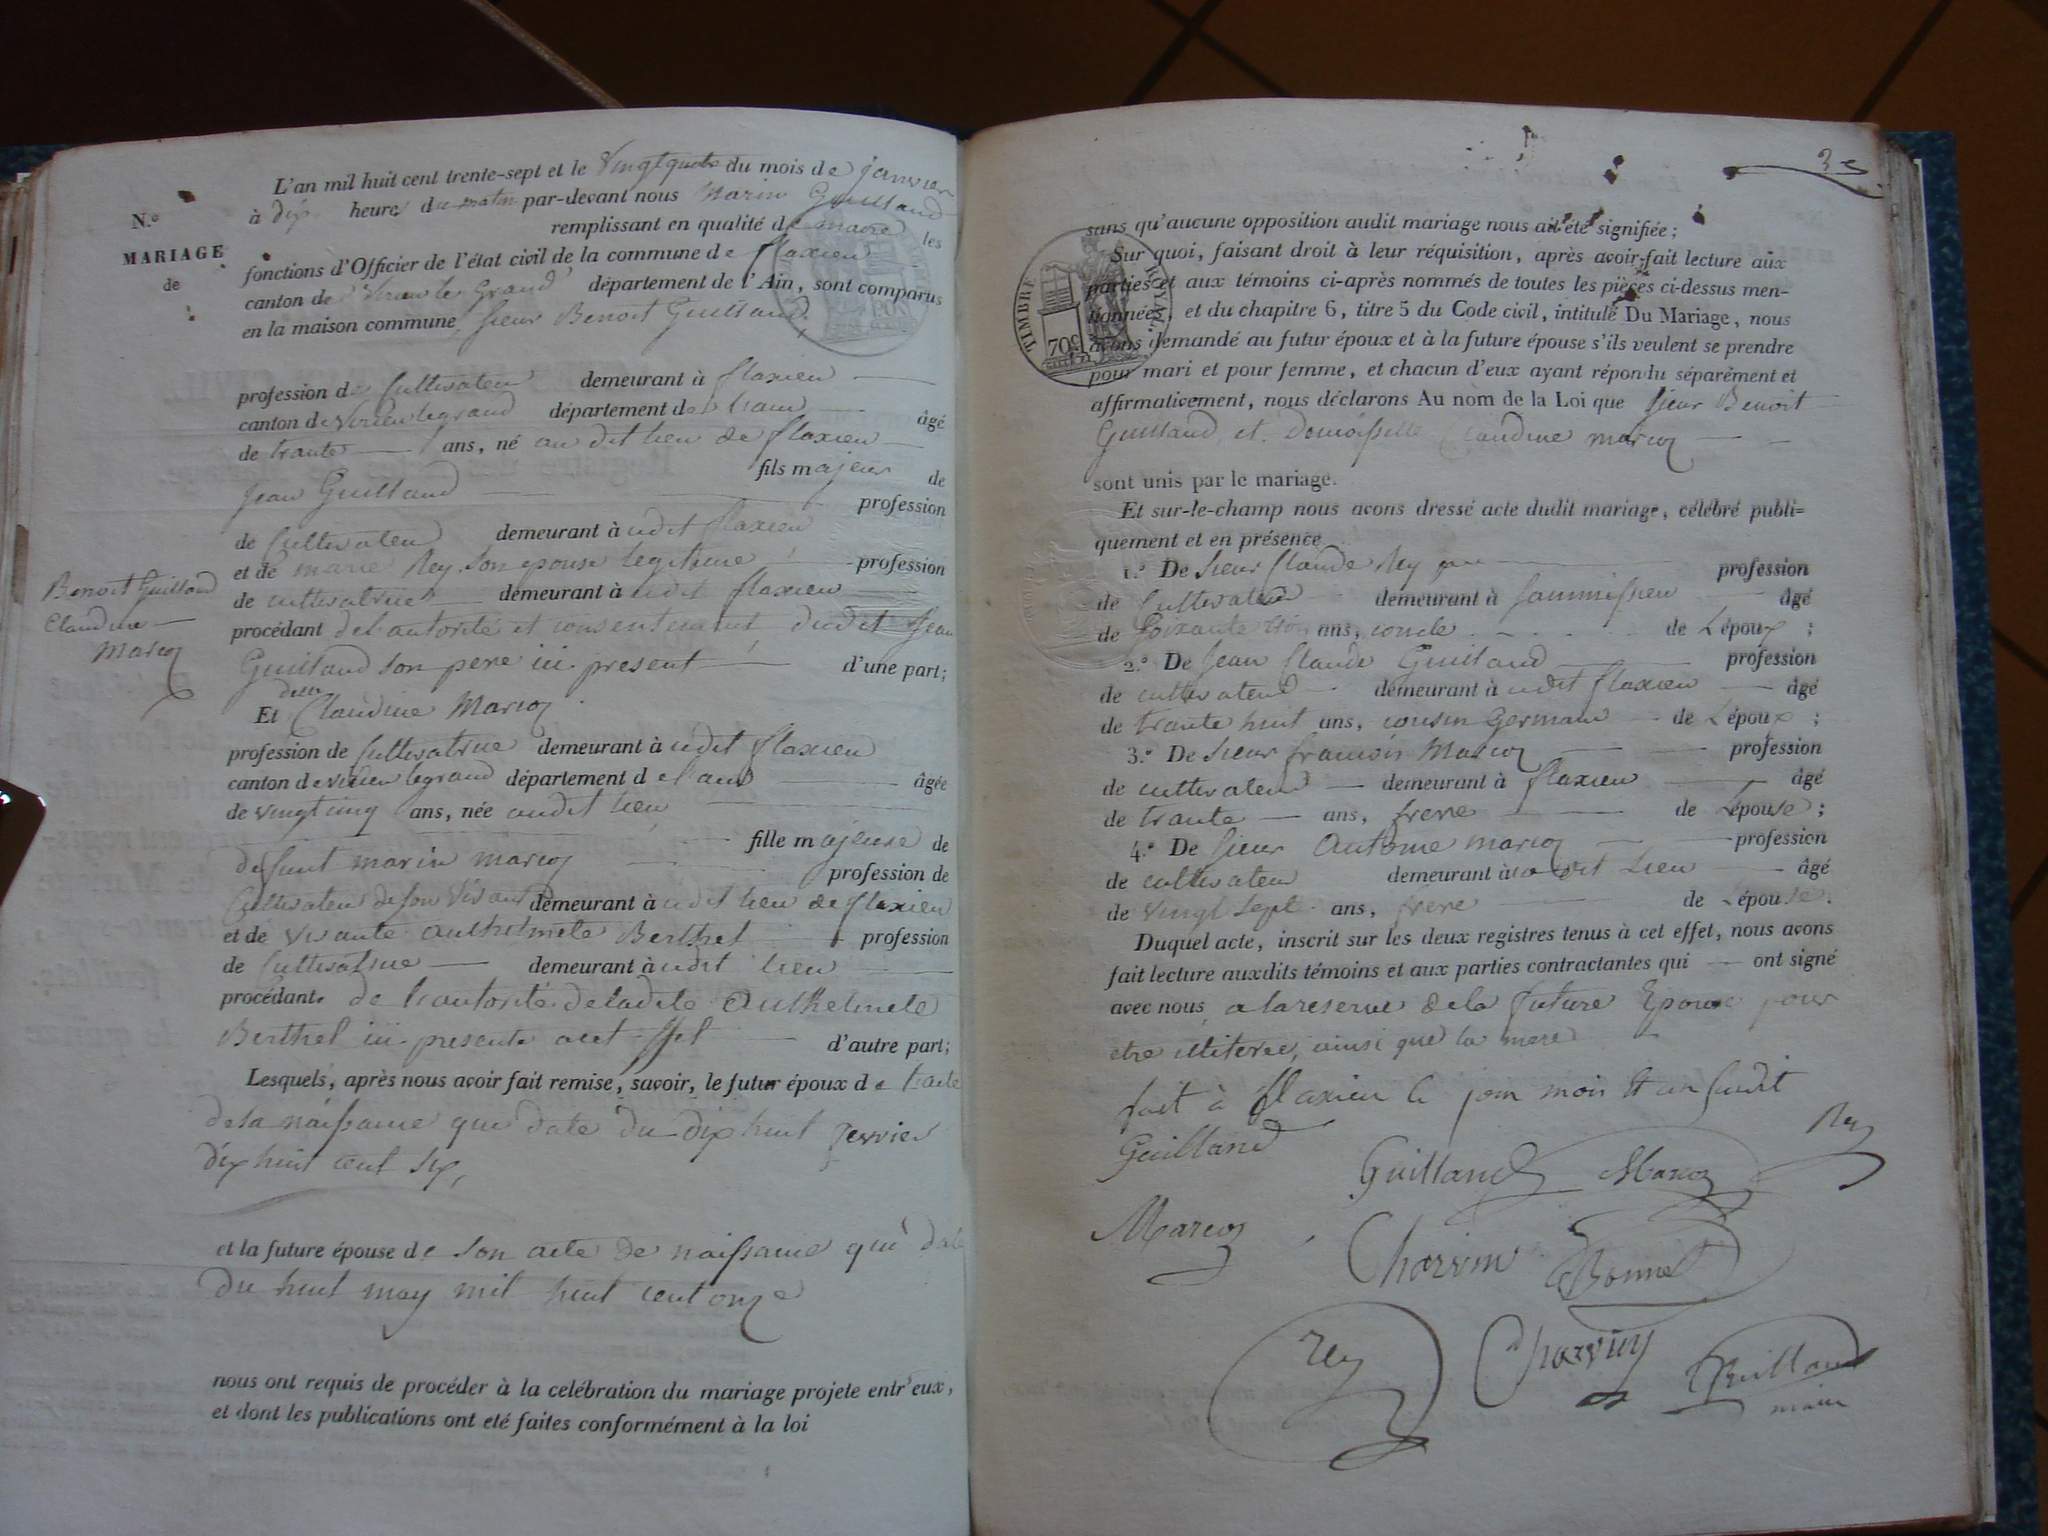 N.º
MARIAGE
de
Benoit Guilland
Claudine
Marcoz
L'an mil huit cent trente-sept et le vingt quatre du mois de janvier
à dix heures du matin par-devant nous Marin Guilland
remplissant en qualité de maire les
fonctions d'Officier de l'état civil de la commune de flaxieu
canton de Virieu le Grand département de l'Ain, sont comparus
en la maison commune, sieur Benoit Guilland,
profession de Cultivateur demeurant à flaxieu
canton de Virieu legrand département de l'ain âgé
de trante ans, né au dit lieu de flaxieu
fils majeur de
Jean Guilland profession
de Cultivateur demeurant à udit flaxieu
et de marie Rey son epouse legitime profession
de cultivatrice demeurant à udit flaxieu
procédant de l'autorité et consentement dudit Jean
Guilland son pere ici present d'une part;
Et delle Claudine Marcoz
profession de Cultivatrice demeurant à udit flaxieu
canton de virieu legrand département d e l'ain âgée
de vingt cinq ans, née audit lieu
fille majeure de
defunt marin marcoz profession de
Cultivateur de son vivant demeurant à udit lieu de flaxieu
et de vivante anthelmete Berthet profession
de Cultivatrice demeurant à udit lieu
procédant de l'autorité de ladite anthelmete
Berthet ici presente a cet effet d'autre part;
Lesquels, après nous avoir fait remise, savoir, le futur époux de l'acte
de sa naissance qui date du dix huit fevrier
dix huit cent six,
et la future épouse de son acte de naissance qui date
du huit may mil huit cent onze
nous ont requis de procéder à la célébration du mariage projeté entr'eux,
et dont les publications ont été faites conformément à la loi
3
sans qu'aucune opposition audit mariage nous ait été signifiée;
Sur quoi, faisant droit à leur réquisition, après avoir fait lecture aux
parties et aux témoins ci-après nommés de toutes les pièces ci-dessus men-
tionnées, et du chapitre 6, titre 5 du Code civil, intitulé Du Mariage, nous
avons demandé au futur époux et à la future épouse s'ils veulent se prendre
pour mari et pour femme, et chacun d'eux ayant répondu séparément et
affirmativement, nous déclarons Au nom de la Loi que sieur Benoit
Guilland et Demoisselle Claudine marcoz
TIMBRE ROYAL
70c
sont unis par le mariage.
Et sur-le-champ nous avons dressé acte dudit mariage, célébré publi=
quement et en présence
1.º De sieur Claude Rey profession
de Cultivateur demeurant à âgé
de Soixante ans, oncle de L'époux;
2.º De Jean Claude Guilland profession
de cultivateur demeurant à udit flaxieu âgé
de trante huit ans, cousin Germain de L'époux;
3.º De sieur francois Marcoz profession
de cultivateur demeurant à flaxieu âgé
de trante ans, frere de L'épouse;
4.º De sieur Antoine marcoz profession
de cultivateur demeurant à udit lieu âgé
de vingt sept ans, frere de L'épouse.
Duquel acte, inscrit sur les deux registres tenus à cet effet, nous avons
fait lecture auxdits témoins et aux parties contractantes qui ont signé
avec nous a la reserve de la future Epouse pour
etre illiterée, ainsi que la mere
fait à flaxieu le jour mois et an susdit
Guilland Guilland Marcoz Rey
Marcoz Charvin Bonnet
rey Charvin Guilland
maire